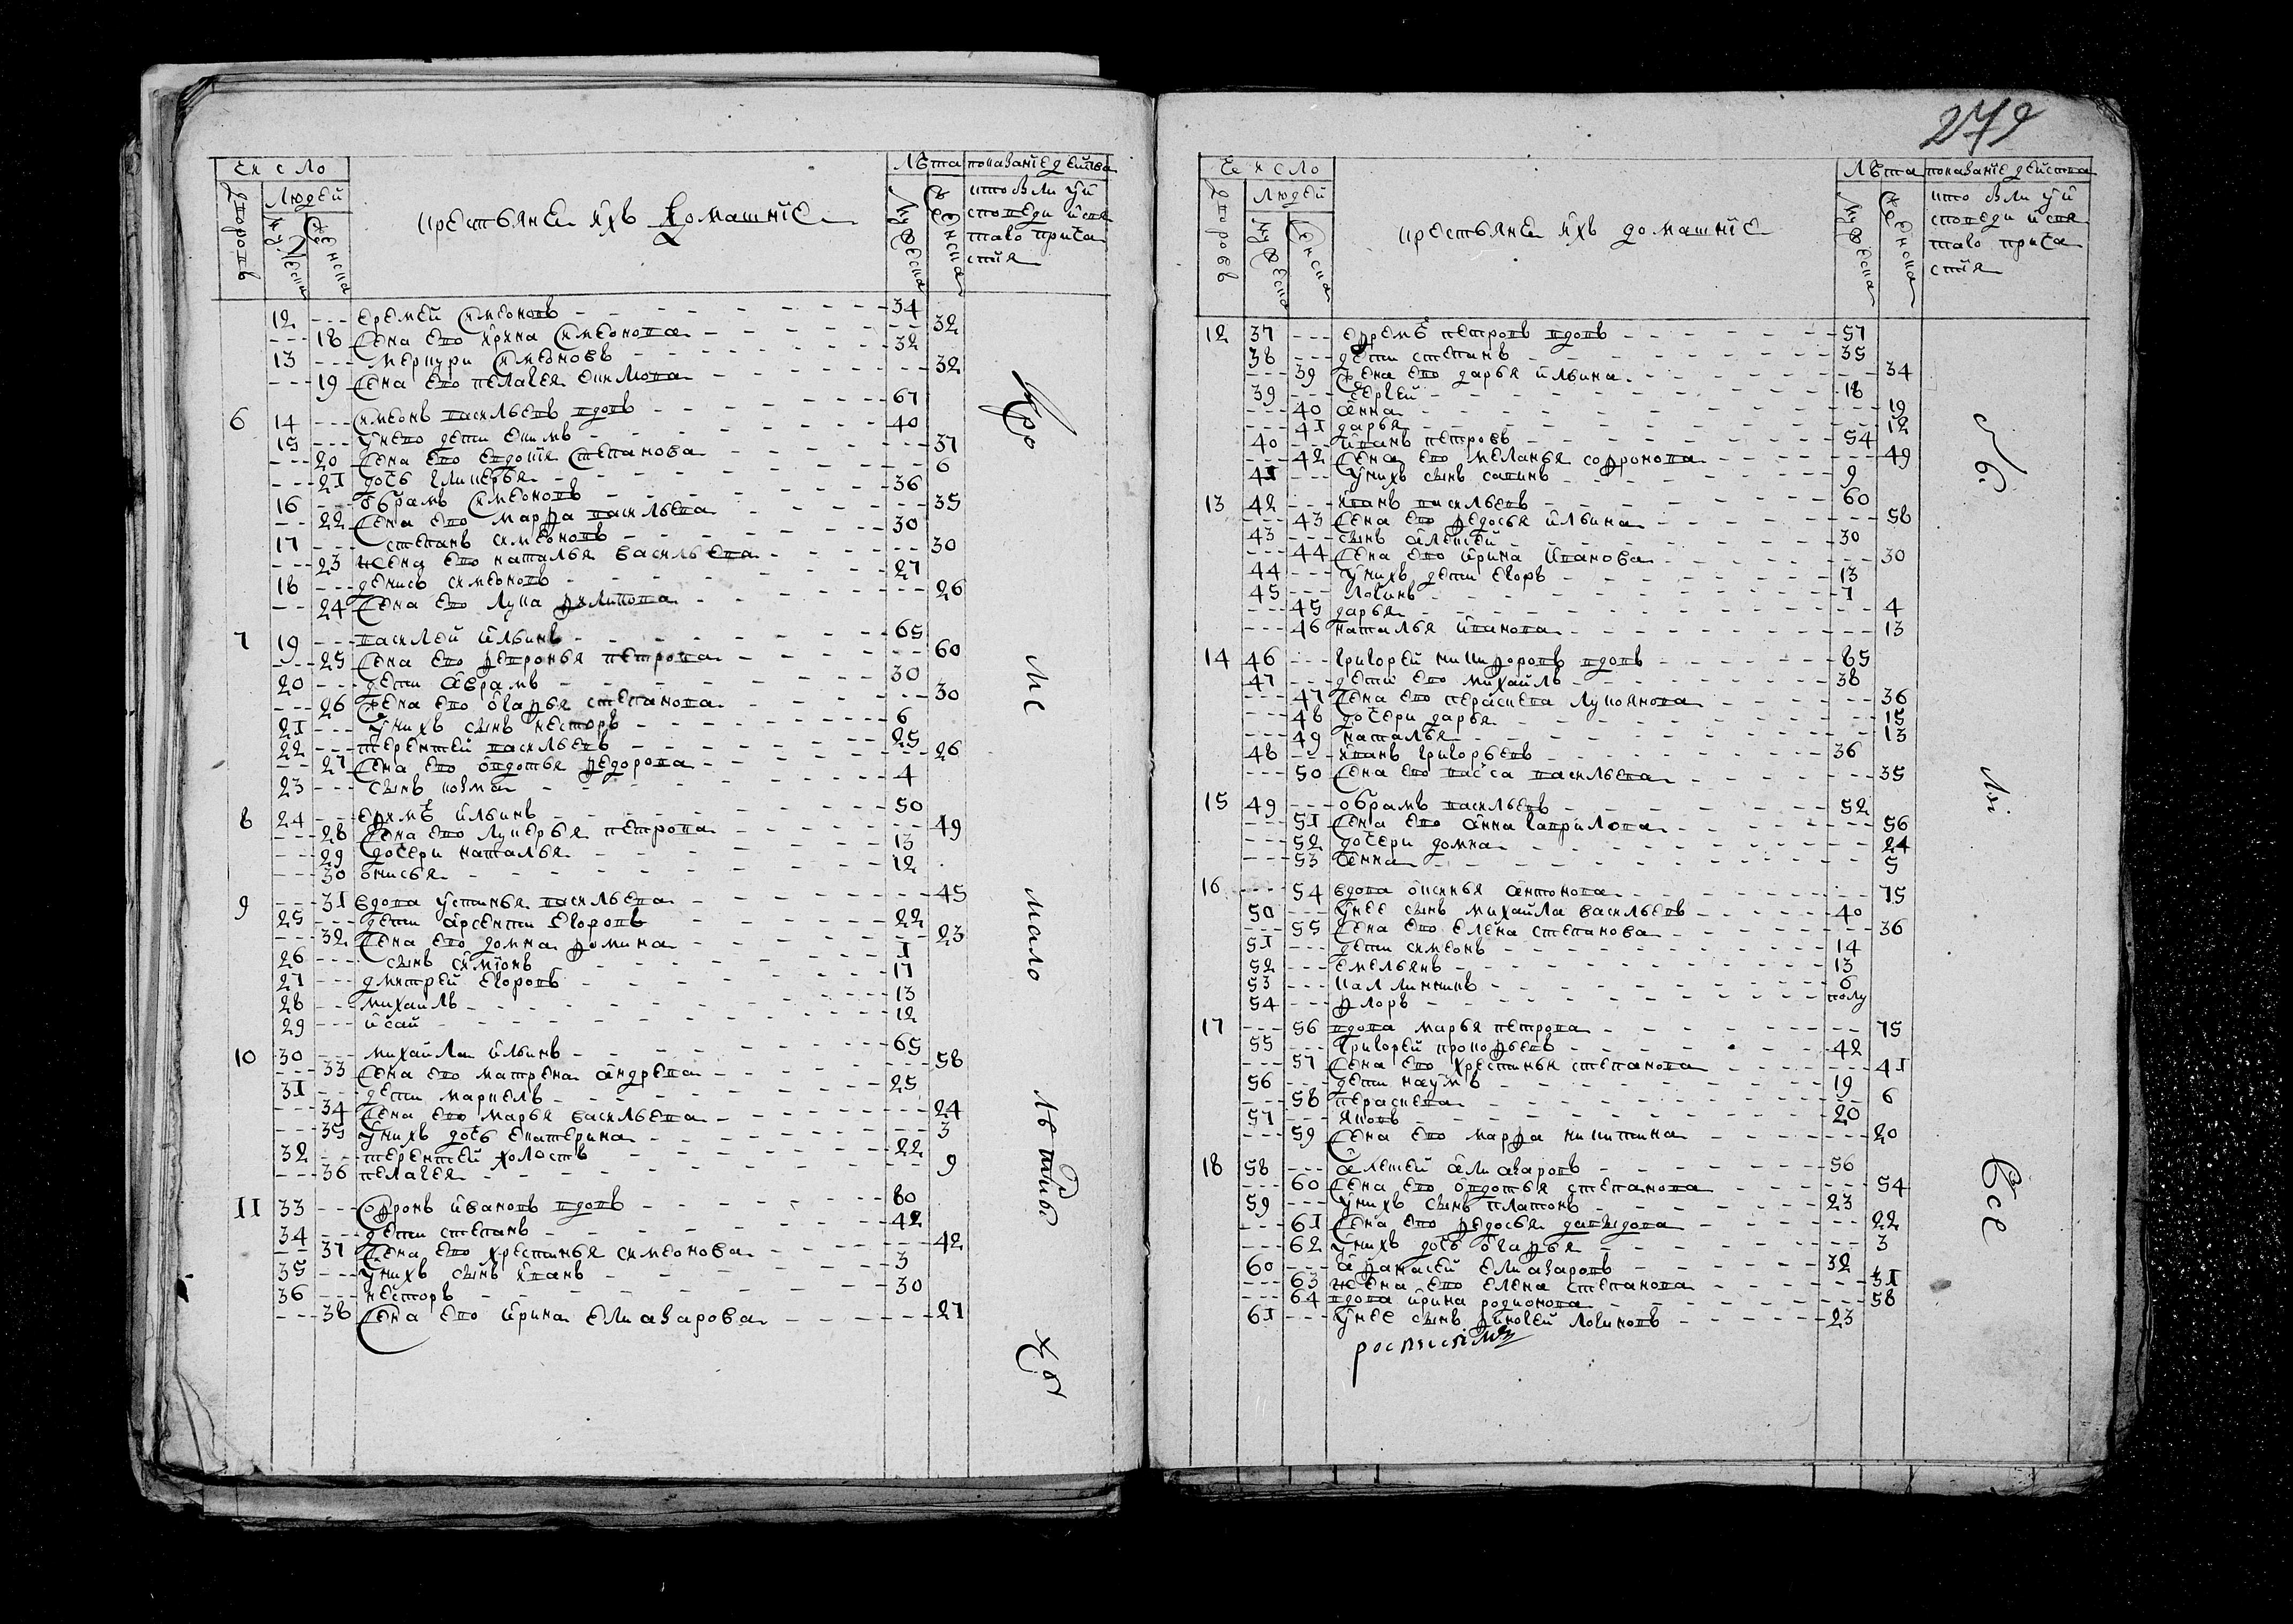 число
Лѣта показание действа
дворовъ
людей
мужеска
женска
крестьяне и ихъ домашние
мужеска
женска
кто были у и
споведи и свя
таго прича
стия
12 --- еремей симеоновъ - - - 34
--- 18 жена ево ирина симеонова - - - 32
13 --- меркури симеоновъ - - - 32
--- 19 жена ево пелагея - - - 32
6 14 --- симеонъ васильевъ вдовъ - - - 67
15 --- у нево дети екимъ - - - 40
--- 20 жена ево евдокия степанова - - - 37
--- 21 дочь гликерья - - - 6
16 --- обрамъ симеоновъ - - - 36
--- 22 жена ево марфа васильева - - - 35
17 --- степанъ симеоновъ - - - 30
--- 23 жена ево наталья васильева - - - 30
18 --- денись симеоновъ - - - 27
--- 24 жена ево лукя филипова - - - 26
7 19 --- василей ильинъ - - - 65
--- 25 жена ево февронья петрова - - - 60
20 --- дети аврамъ - - - 30
--- 26 жена ево огафья степанова - - - 30
21 --- у нихъ сынъ несторъ - - - 6
22 --- терентей васильевъ - - - 25
--- 27 жена ево овдотья федорова - - - 26
23 --- сынъ козма - - - 4
8 24 --- ефимъ ильинъ - - - 50
--- 28 жена ево лукерья петрова - - - 49
--- 29 дочери наталья - - - 13
--- 30 онисья - - - 12
9 --- 31 вдова устинья васильева - - - 45
25 --- дети арсенти егоровъ - - - 22
--- 32 жена ево домна фомина - - - 23
26 --- сынъ симионъ - - - 1
27 --- дмитрей егоровъ - - - 17
28 --- михаилъ - - - 13
29 --- исай - - - 12
10 30 --- михайла ильинъ - - - 65
--- 33 жена ево матрена андрева - - - 58
31 --- дети маркелъ - - - 25
--- 34 жена ево марья васильева - - - 24
--- 35 у нихъ дочь екатерина - - - 3
32 --- терентей холостъ - - - 22
--- 36 пелагея - - - 9
11 33 --- софронъ ивановъ вдовъ - - - 80
34 --- дети степанъ - - - 42
--- 37 жена ево хрестинья симеонова - - - 42
35 --- у нихъ сынъ иванъ - - - 3
36 --- несторъ - - - 30
--- 38 жена ево ирина елиазарова - - - 27
Кро
ме
мало
лѣтныхъ
279
число
Лѣта показание действа
дворовъ
людей
мужеска
женска
крестьяне и ихъ домашние
мужеска
женска
кто были у и
споведи и свя
таго прича
стия
12 37 --- ефремъ петровъ вдовъ - - - 57
38 --- дети степанъ - - - 35
--- 39 жена ево дарья ильина - - - 34
39 --- сергей - - - 18
--- 40 анна - - - 19
--- 41 дарья - - - 12
40 --- иванъ петровъ - - - 54
--- 42 жена ево меланья софронова - - - 49
41 --- у нихъ сынъ савинъ - - - 9
13 42 --- иванъ васильевъ - - - 60
--- 43 жена ево федосья ильина - - - 58
43 --- сынъ алексей - - - 30
--- 44 жена ево ирина иванова - - - 30
44 --- у нихъ дети егоръ - - - 13
45 --- логинъ - - - 7
--- 45 дарья - - - 4
--- 46 наталья иванова - - - 13
14 46 --- григорей никифоровъ вдовъ - - - 85
47 --- дети ево михайлъ - - - 38
--- 47 жена ево пераскева лукоянова - - - 36
--- 48 дочери дарья - - - 15
--- 49 наталья - - - 13
48 --- иванъ григорьевъ - - - 36
--- 50 жена ево васса васильева - - - 35
15 49 --- обрамъ васильевъ - - - 52
--- 51 жена ево анна гаврилова - - - 56
--- 52 дочери домна - - - 24
--- 53 анна - - - 5
16 --- 54 вдова оксинья антонова - - - 75
50 --- у нее сынъ михайла васильевъ - - - 40
--- 55 жена ево елена степанова - - - 36
51 --- дети симеонъ - - - 14
52 --- емельянъ - - - 13
53 --- каллиникъ - - - 6
54 --- флоръ - - - полу
17 --- 56 вдова марья петрова - - - 75
55 --- григорей прокофьевъ - - - 42
--- 57 жена ево хрестинья степанова - - - 41
56 --- дети наумъ - - - 19
--- 58 пераскева - - - 6
57 --- яковъ - - - 20
--- 59 жена ево марфа никитина - - - 20
18 58 --- алексей алиазаровъ - - - 56
--- 60 жена ево овдотья степанова - - - 54
59 --- у нихъ сынъ платонъ - - - 23
--- 61 жена ево федосья давыдова - - - 22
--- 62 у нихъ дочь огафья - - - 3
60 --- афанасей елиазаровъ - - - 32
--- 63 жена ево елена степанова - - - 31
--- 64 вдова ирина родионова - - - 58
61 --- у нее сынъ финогей логиновъ - - - 23
Все